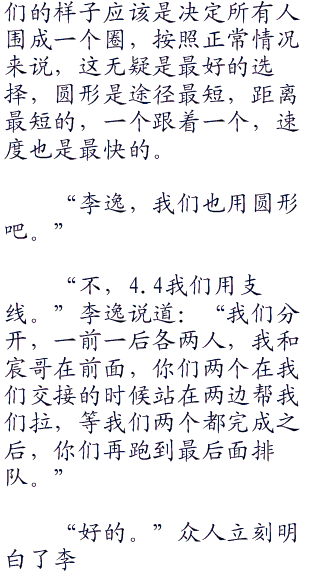 们的样子应该是决定所有人
围成一个圈，按照正常情况
来说，这无疑是最好的选
择，圆形是途径最短，距离
最短的，一个跟着一个，速
度也是最快的。
“李逸，我们也用圆形
吧。”
“不，4.4我们用支
线。”李逸说道：“我们分
开，一前一后各两人，我和
宸哥在前面，你们两个在我
们交接的时候站在两边帮我
们拉，等我们两个都完成之
后，你们再跑到最后面排
队。”
“好的。”众人立刻明
白了李